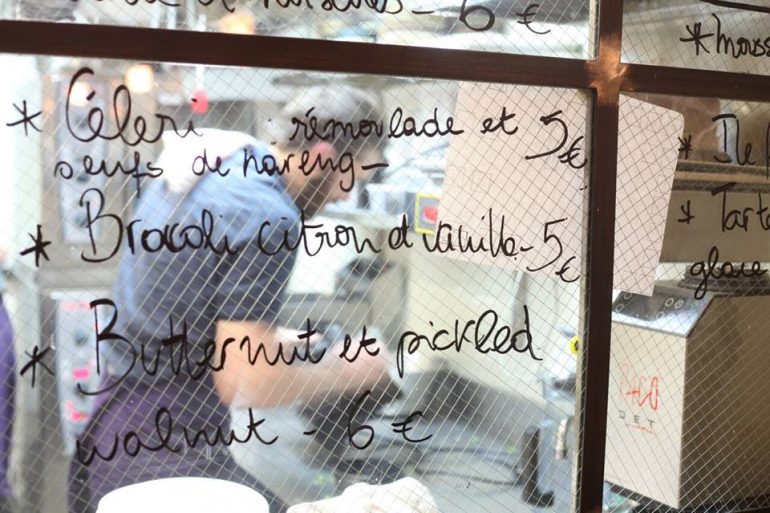 et - 6 €
* Céleri rémoulade et 5€
oeufs de hareng -
* Brocoli citron et vanille - 5€
* Butternut et pickled
walnut - 6 €
*
*
glace